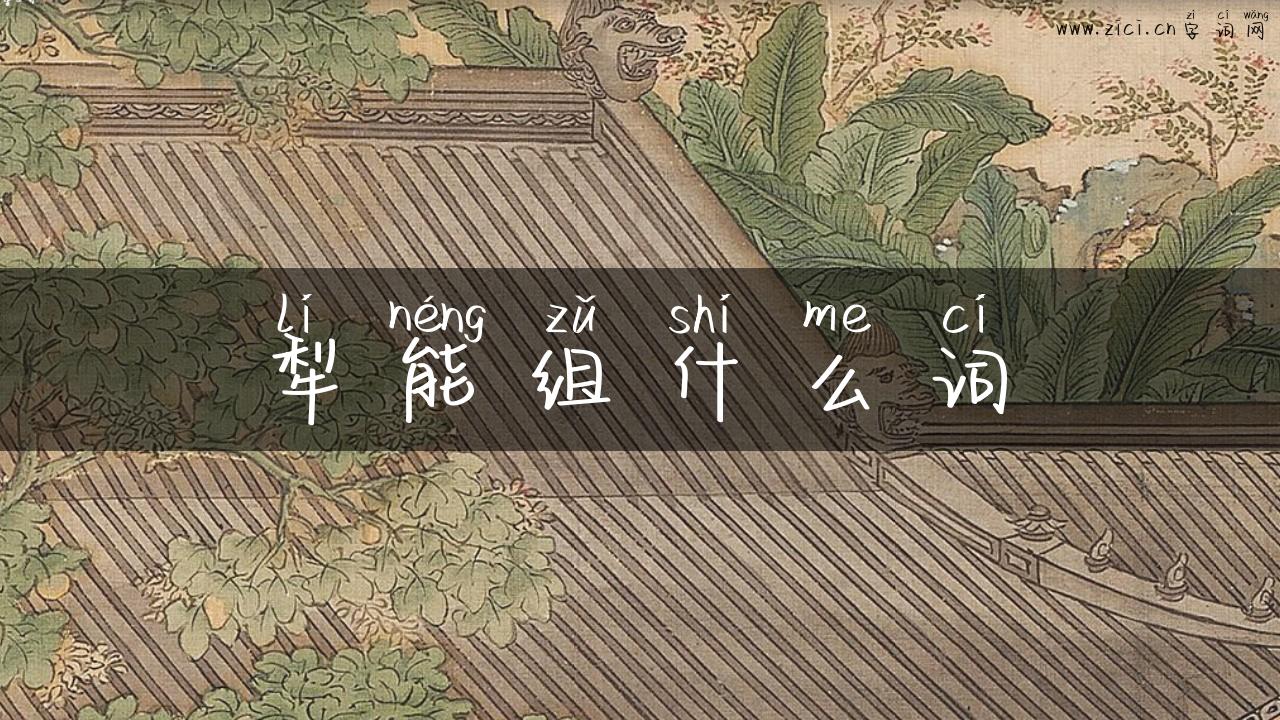 zì cí wǎng
www.zici.cn 字词网
lí néng zǔ shí me cí
犁能组什么词